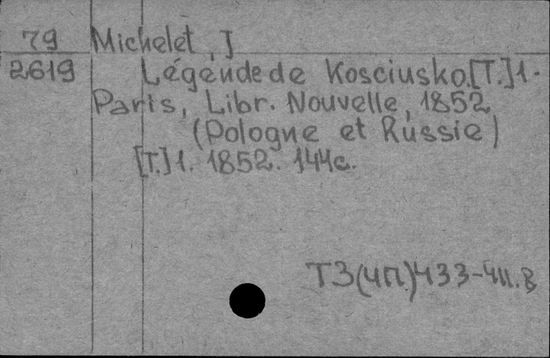 79 Michelet, J
2619 Légende de Kosciusko.[T.]1.
Paris, Libr. Nouvelle, 1852
(Pologne et Russie)
[T.]1. 1852. 144c.
Т3(4П)433-4п.8